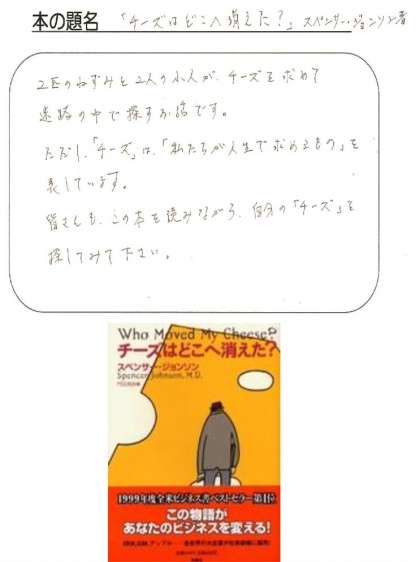 本の題名 「チーズはどこへ消えた?」スペンサー・ジョンソン著
2匹のねずみと2人の小人が、チーズを求めて
迷路の中で探すお話です。
ただし、「チーズ」は、「私たちが人生で求めるもの」を
表しています。
皆さんも、この本を読みながら、自分の「チーズ」を
探してみて下さい。
Who Moved My Cheese?
チーズはどこへ消えた?
スペンサー・ジョンソン
Spencer Johnson, M.D.
1999年度全米ビジネス書ベストセラー第1位
この物語が
あなたのビジネスを変える!